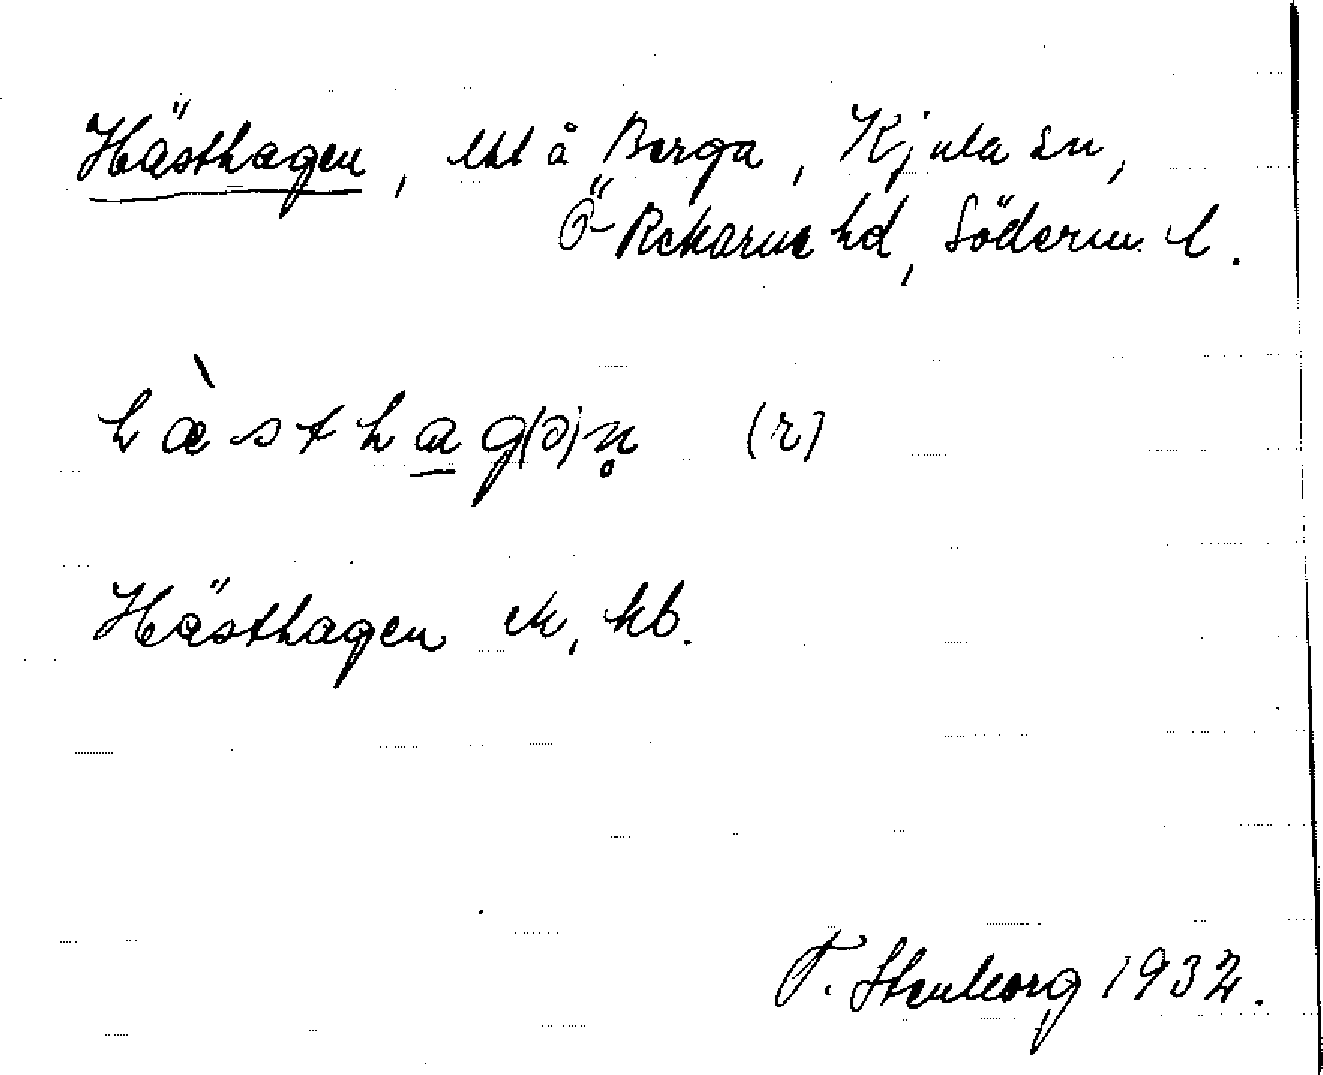 Hästhagen, lht å Berga, Kjula sn,
Ö Rekarne hd, Söderm. l.
hà̀sthag(ə)n̥ (r)
Hästhagen ek, kb.
T. Stenborg 1932.